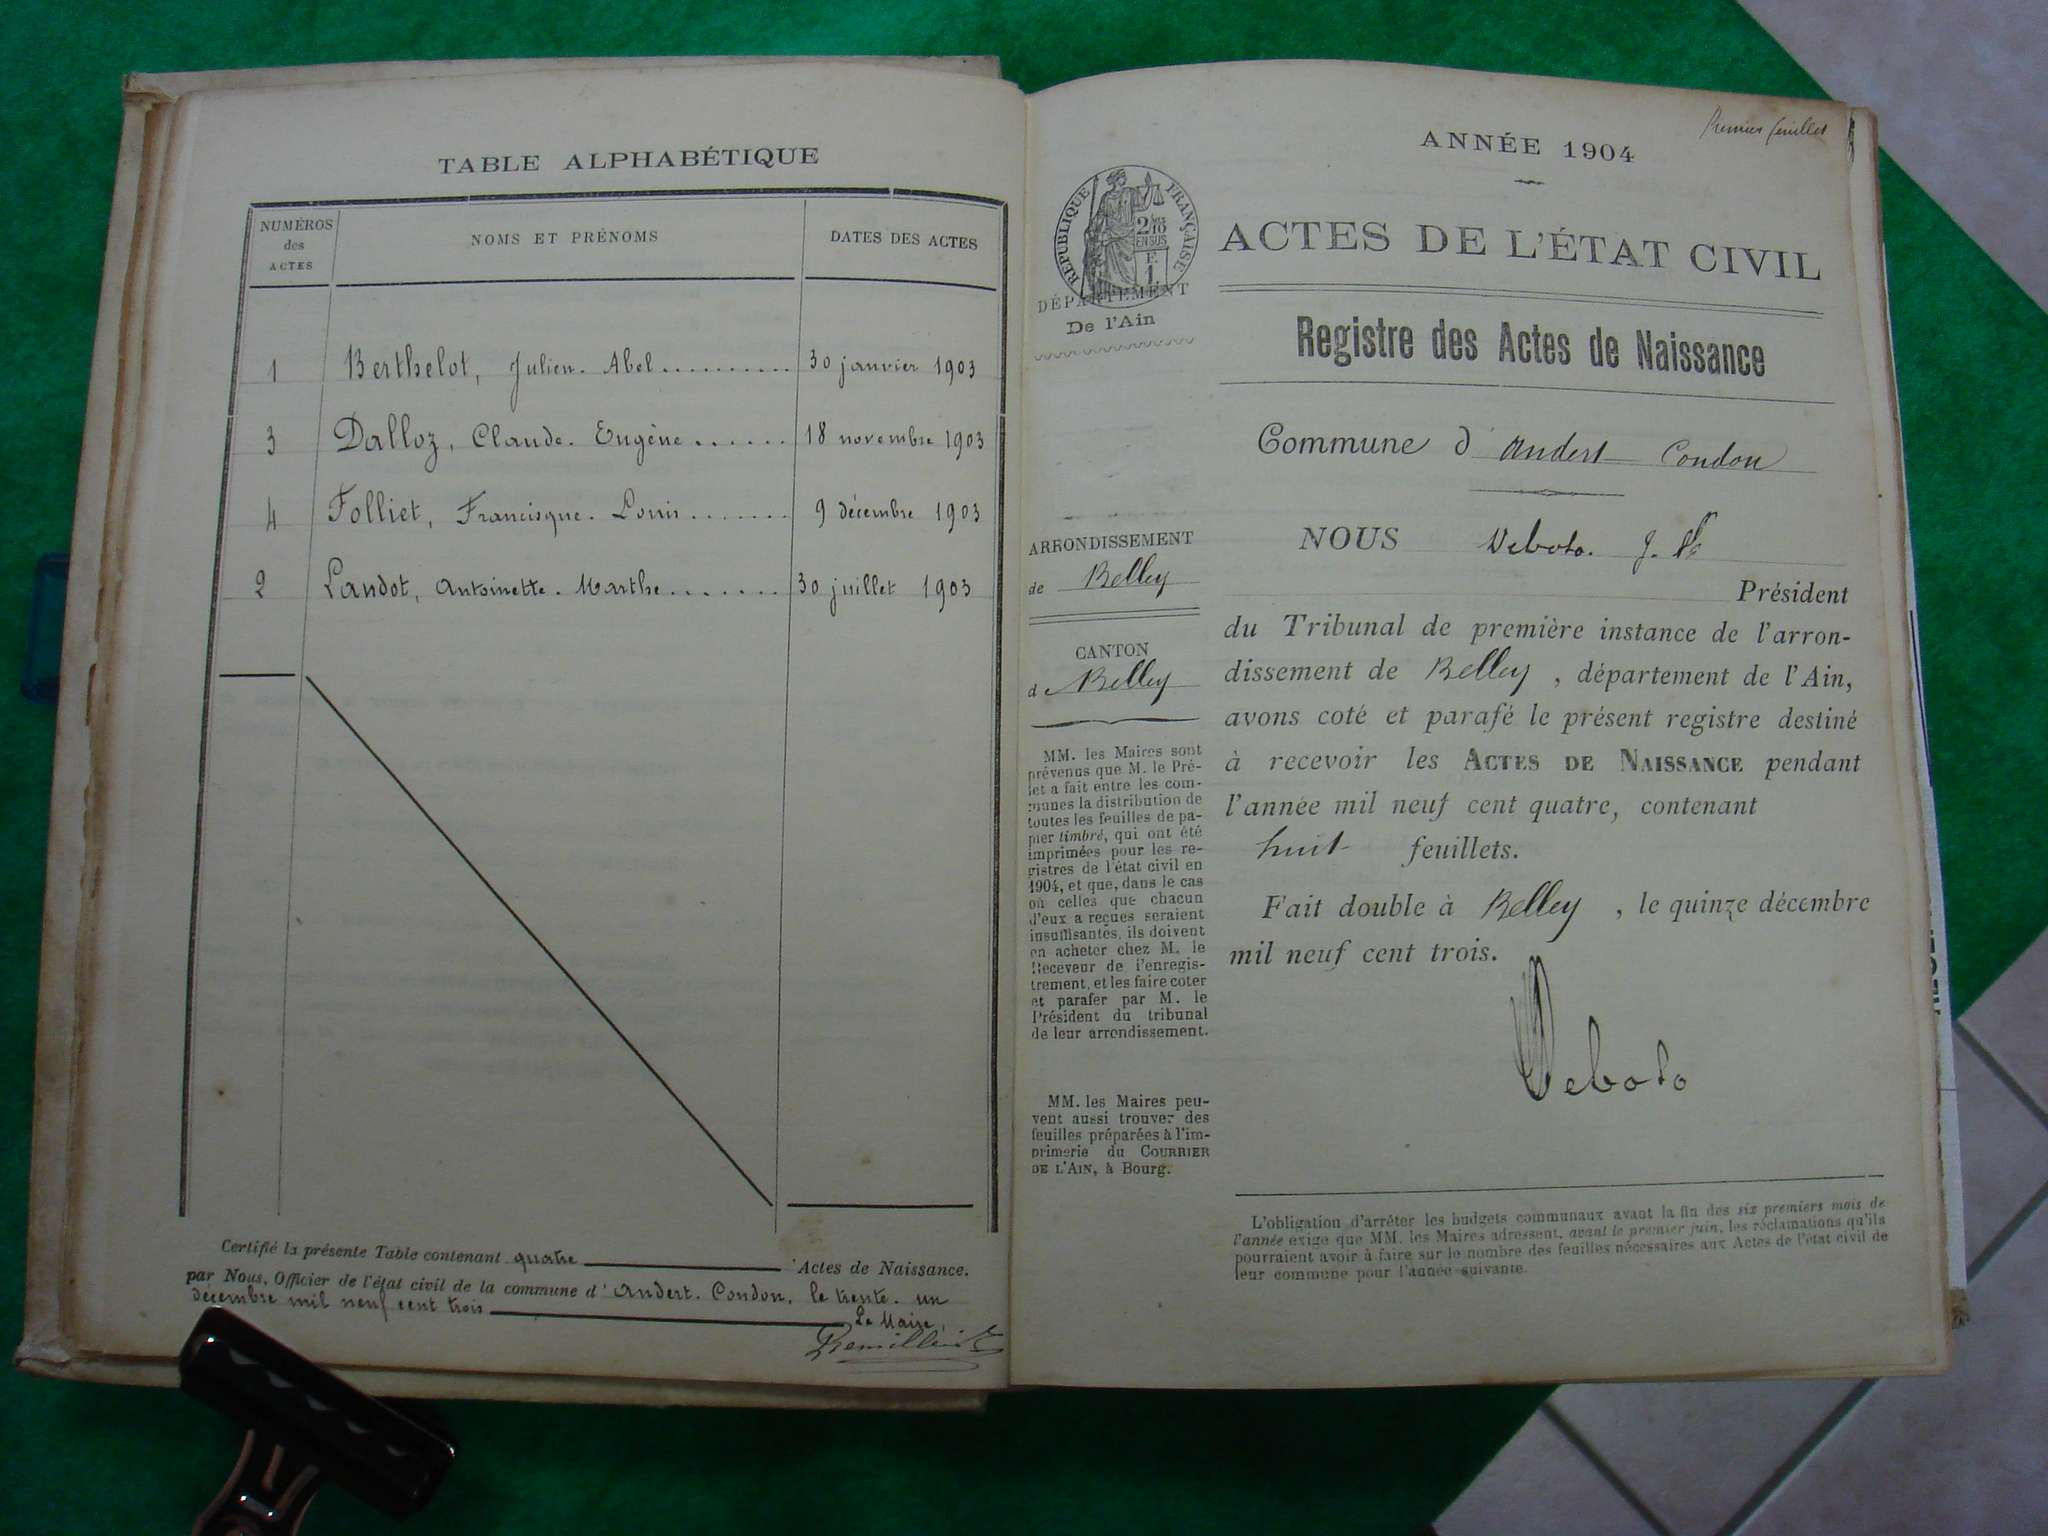 TABLE ALPHABÉTIQUE
NUMÉROS
des
ACTES
NOMS ET PRÉNOMS
DATES DES ACTES
1 Berthelot, Julien. Abel.......... 30 janvier 1903
3 Dalloz, Claude. Eugène...... 18 novembre 1903
4 Folliet, Francisque. Louis....... 9 décembre 1903
2 Landot, Antoinette. Marthe....... 30 juillet 1903
Certifié la présente Table contenant quatre Actes de Naissance.
par Nous, Officier de l'état civil de la commune d'Andert. Condon, le trente. un
décembre mil neuf cent trois
Le Maire,
Premier feuillet
ANNÉE 1904
RÉPUBLIQUE FRANÇAISE
2/10
EN SUS
F.
1
DÉPARTEMENT
De l'Ain
ACTES DE L'ÉTAT CIVIL
Registre des Actes de Naissance
Commune d'Andert Condon
ARRONDISSEMENT
de Belley
CANTON
de Belley
MM. les Maires sont
prévenus que M. le Pré-
fet a fait entre les com-
munes la distribution de
toutes les feuilles de pa-
pier timbré, qui ont été
imprimées pour les re-
gistres de l'état civil en
1904, et que, dans le cas
où celles que chacun
d'eux a reçues seraient
insuffisantes, ils doivent
en acheter chez M. le
Receveur de l'enregis-
trement, et les faire coter
et parafer par M. le
Président du tribunal
de leur arrondissement.
MM. les Maires peu-
vent aussi trouver des
feuilles préparées à l'im-
primerie du COURRIER
DE L'AIN, à Bourg.
NOUS
Président
du Tribunal de première instance de l'arron-
dissement de Belley, département de l'Ain,
avons coté et parafé le présent registre destiné
à recevoir les ACTES DE NAISSANCE pendant
l'année mil neuf cent quatre, contenant
huit feuillets.
Fait double à Belley, le quinze décembre
mil neuf cent trois.
L'obligation d'arrêter les budgets communaux avant la fin des six premiers mois de
l'année exige que MM. les Maires adressent, avant le premier juin, les réclamations qu'ils
pourraient avoir à faire sur le nombre des feuilles nécessaires aux Actes de l'état civil de
leur commune pour l'année suivante.